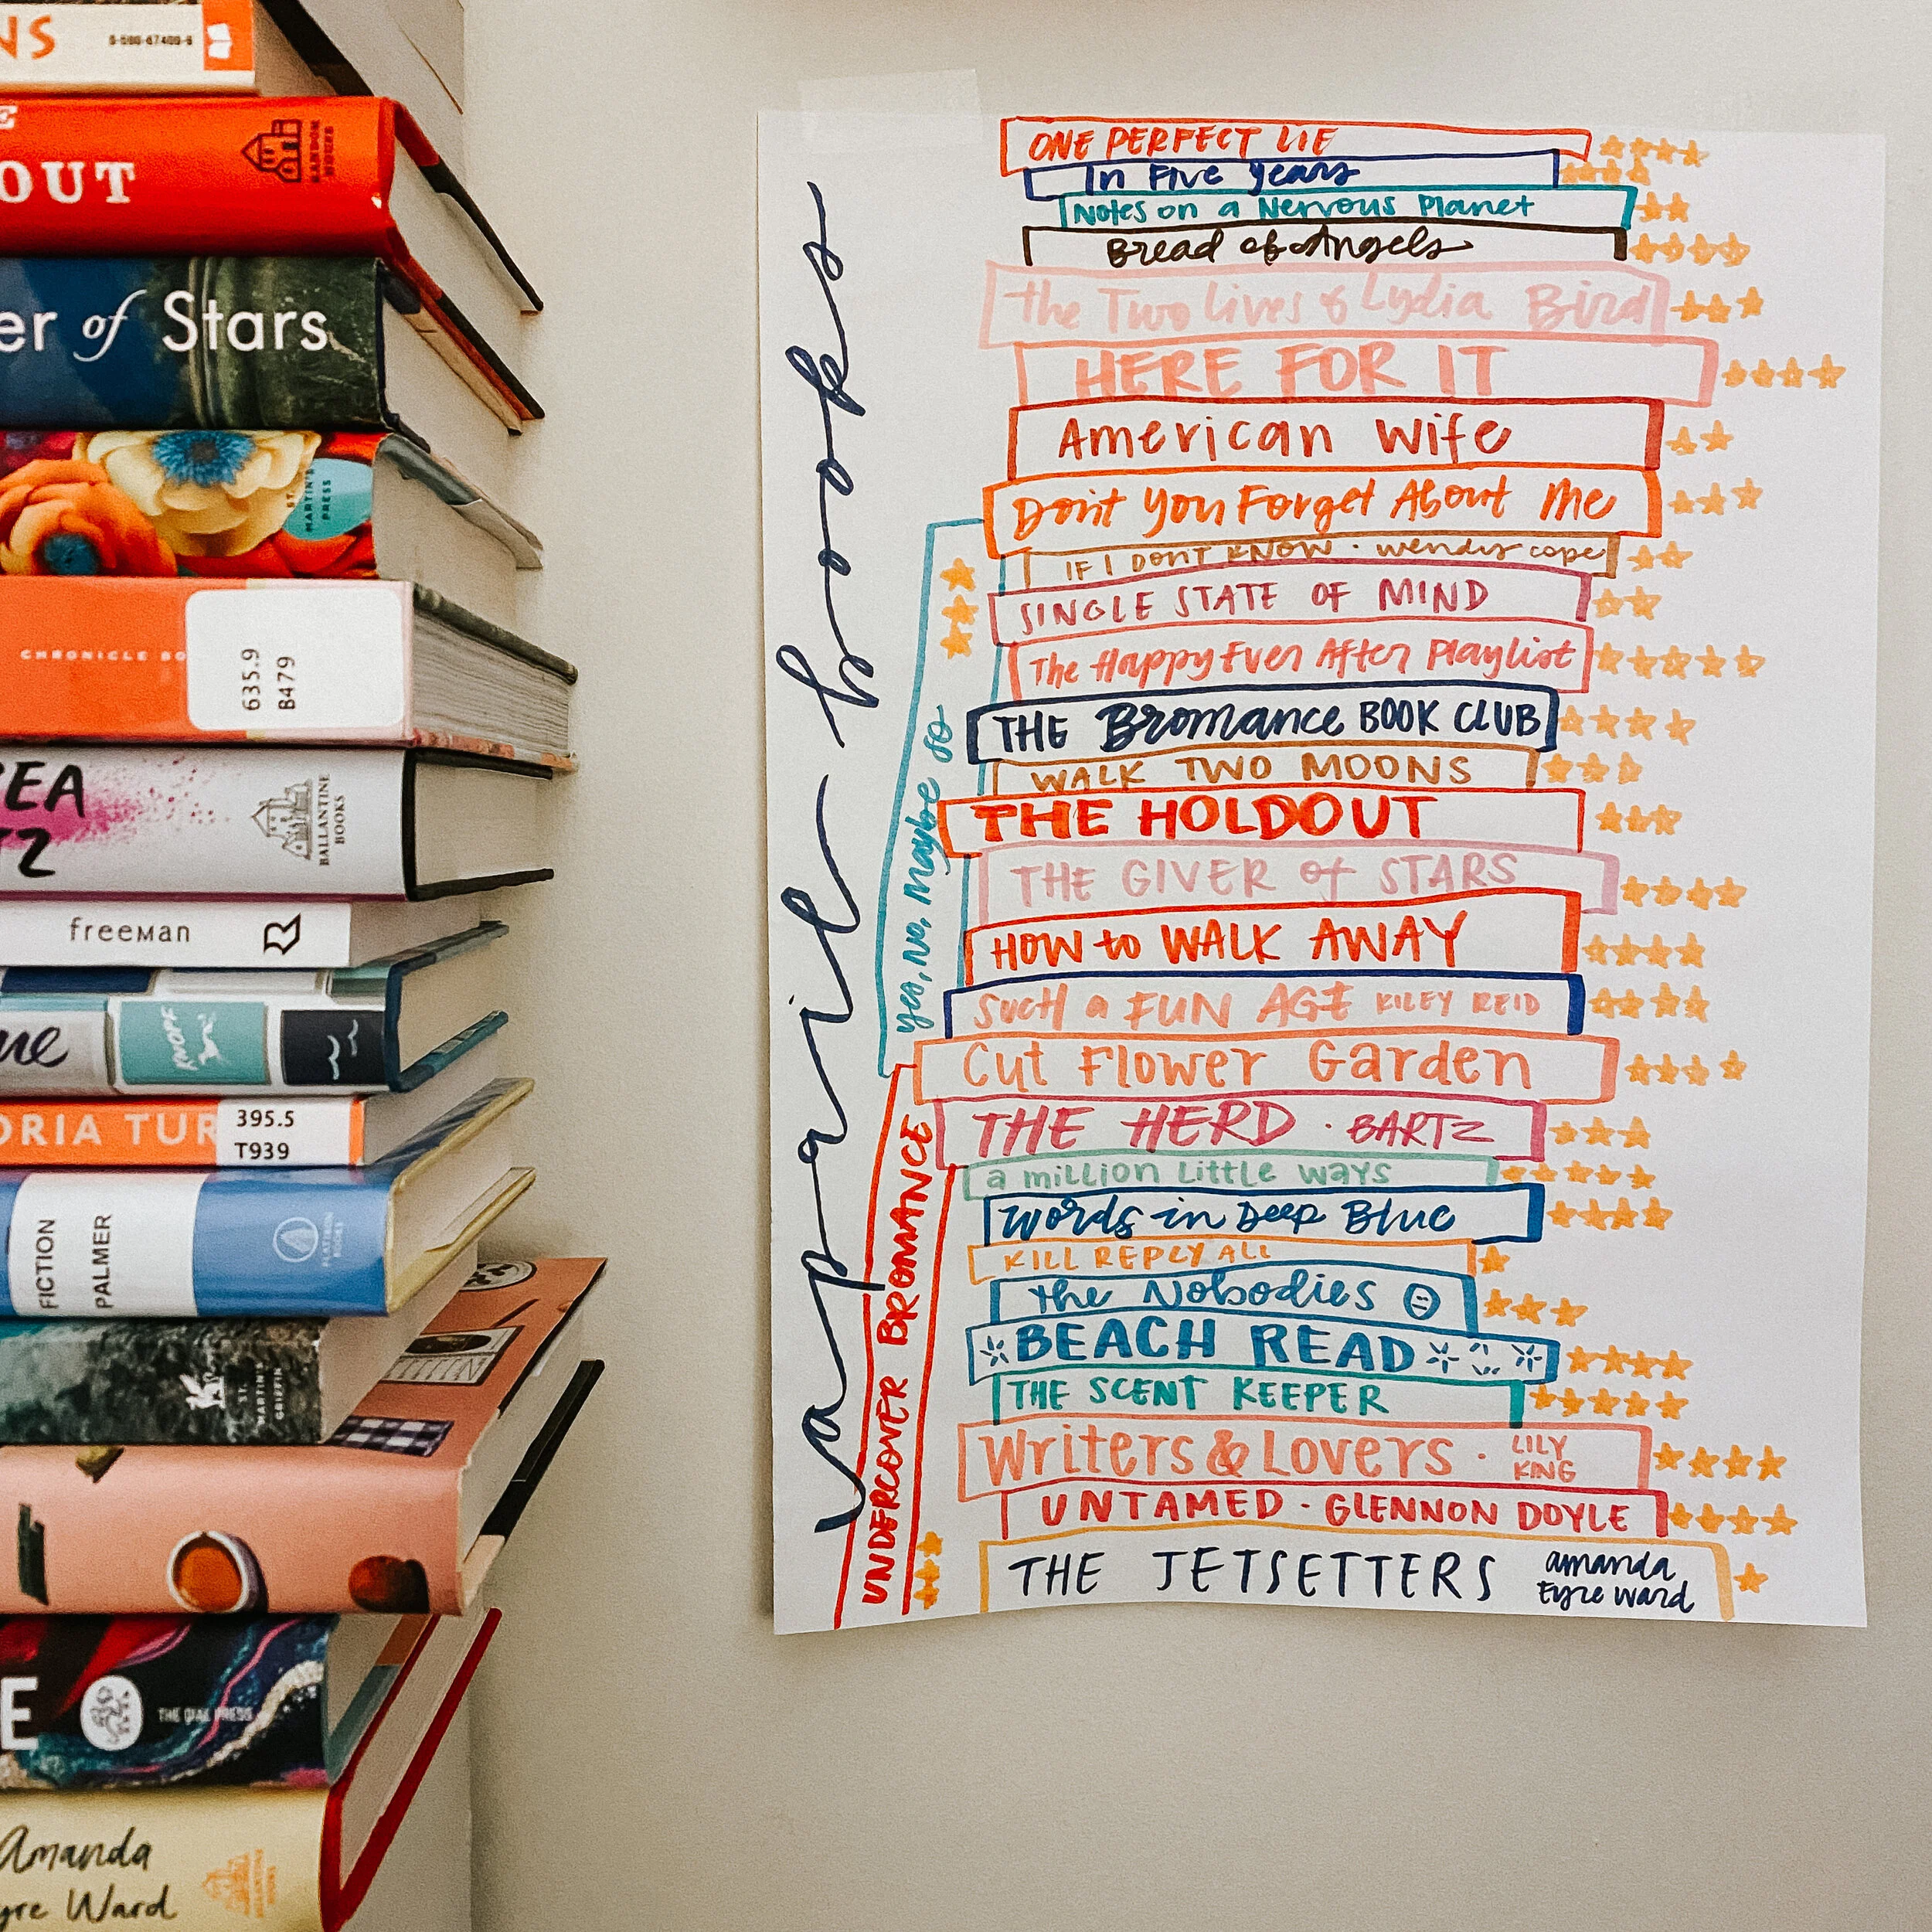 NS
0-590-67409-6
E
OUT
RANDOM
HOUSE
er of Stars
ST.
MARTIN'S
PRESS
CHRONICLE BO
635.9
B479
EA
TZ
BALLANTINE
BOOKS
freeman
ue
KNOPF
ORIA TUR
395.5
T939
FICTION
PALMER
ST.
MARTIN'S
GRIFFIN
E
THE DIAL PRESS
Amanda
yre Ward
april books
ONE PERFECT LIE
In Five Years
Notes on a Nervous Planet
Bread of Angels
the Two Lives of Lydia Bird
HERE FOR IT
American Wife
Don't You Forget About Me
IF I DON'T KNOW · wendy cope
SINGLE STATE OF MIND
The Happy Ever After Playlist
THE Bromance BOOK CLUB
WALK TWO MOONS
THE HOLDOUT
THE GIVER of STARS
HOW to WALK AWAY
SUCH a FUN AGE KILEY REID
Cut Flower Garden
THE HERD · BARTZ
a million Little ways
Words in Deep Blue
KILL REPLY ALL
the Nobodies
BEACH READ
THE SCENT KEEPER
Writers & Lovers · LILY
KING
UNTAMED · GLENNON DOYLE
THE JETSETTERS amanda
Eyre Ward
yes, no, maybe so
UNDERCOVER BROMANCE